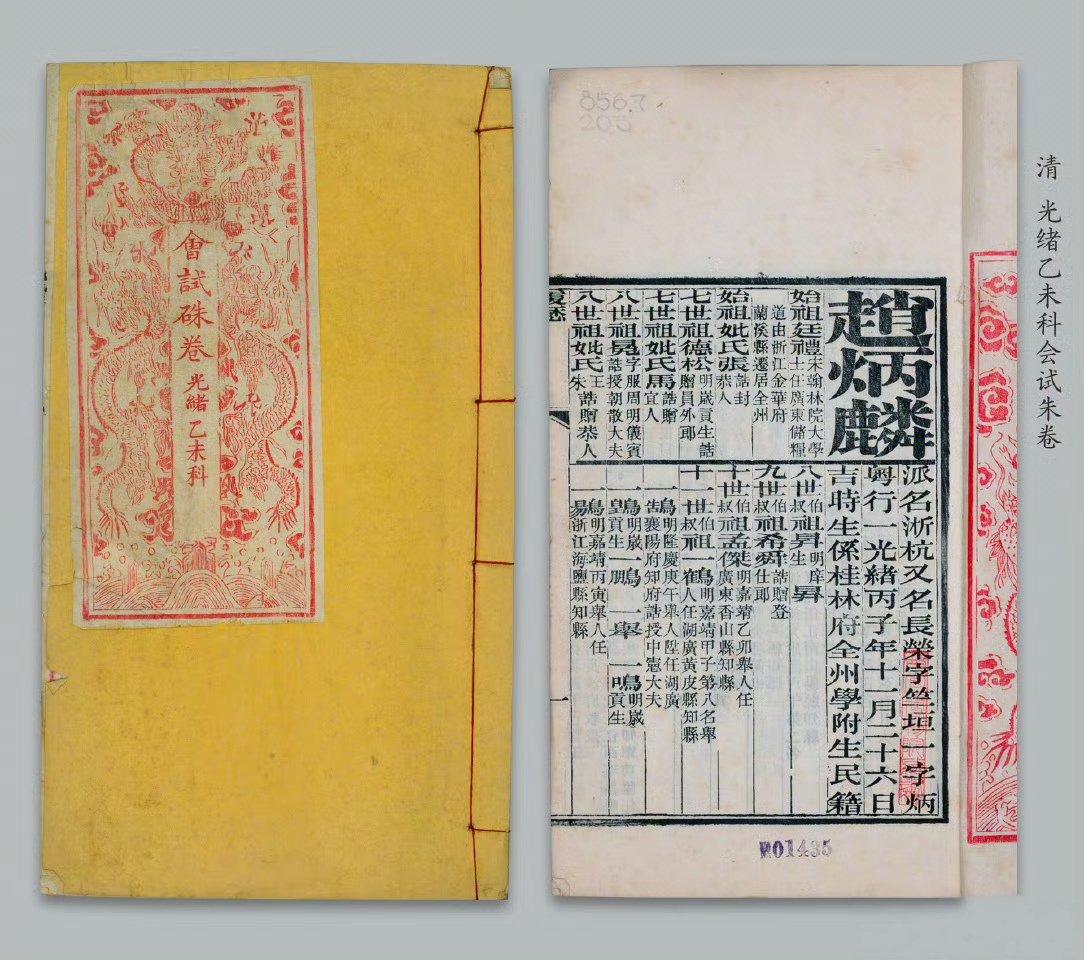 會試硃卷 光緒乙未科
856.7
203
趙炳麟
派名浙杭又名長榮字竺垣一字炳
粵行一光緒丙子年十一月二十六日
吉時生係桂林府全州學附生民籍
始祖廷禮宋翰林院大學
士任廣東儲糧
道由浙江金華府
蘭溪縣遷居全州
始祖妣氏張誥封
恭人
七世祖德松明歲貢生誥
贈員外郎
七世祖妣氏馬誥贈
宜人
八世祖冕字服周明儀賓
誥授朝散大夫
八世祖妣氏王
朱誥贈恭人
履歷
八世伯叔祖昇明庠
生
昴
九世伯叔祖希舜誥贈登
仕郎
十世伯叔祖孟傑明嘉靖乙卯舉人任
廣東香山縣知縣
十一世伯叔祖一鶴明嘉靖甲子第八名舉
人任湖廣黃皮縣知縣
一鵷明隆慶庚午舉人陞任湖廣
襄陽府知府誥授中憲大夫
一鶚明歲
貢生
一鵬
一舉
一鳴明歲
貢生
一鷃明嘉靖丙寅舉人任
浙江海鹽縣知縣
一
M01435
清 光绪乙未科会试朱卷